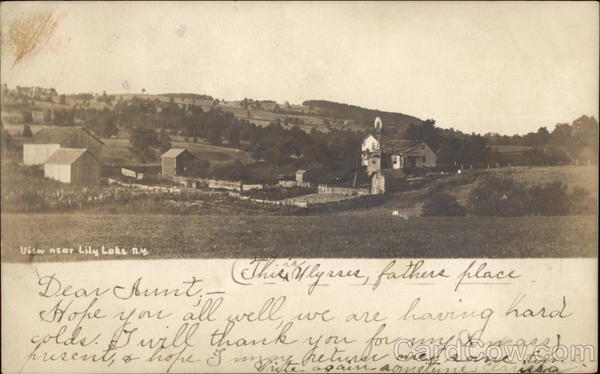 View near Lily Lake N.Y.
(This is Ulysses, fathers place
Dear Aunt,-
Hope you all well, we are having hard
colds. I will thank you for my X mass
present, & hope I may return
Write again sometime Clarissa
CardCow.com